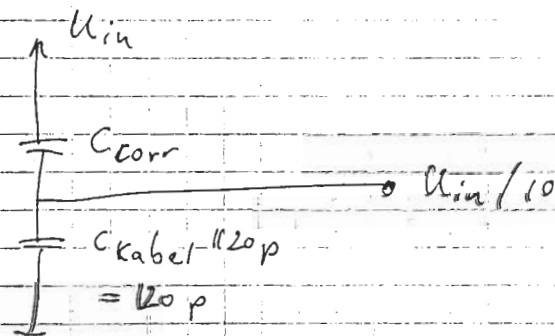 Uin
Ccorr
Uin/10
CKabel ||20p
= 120p